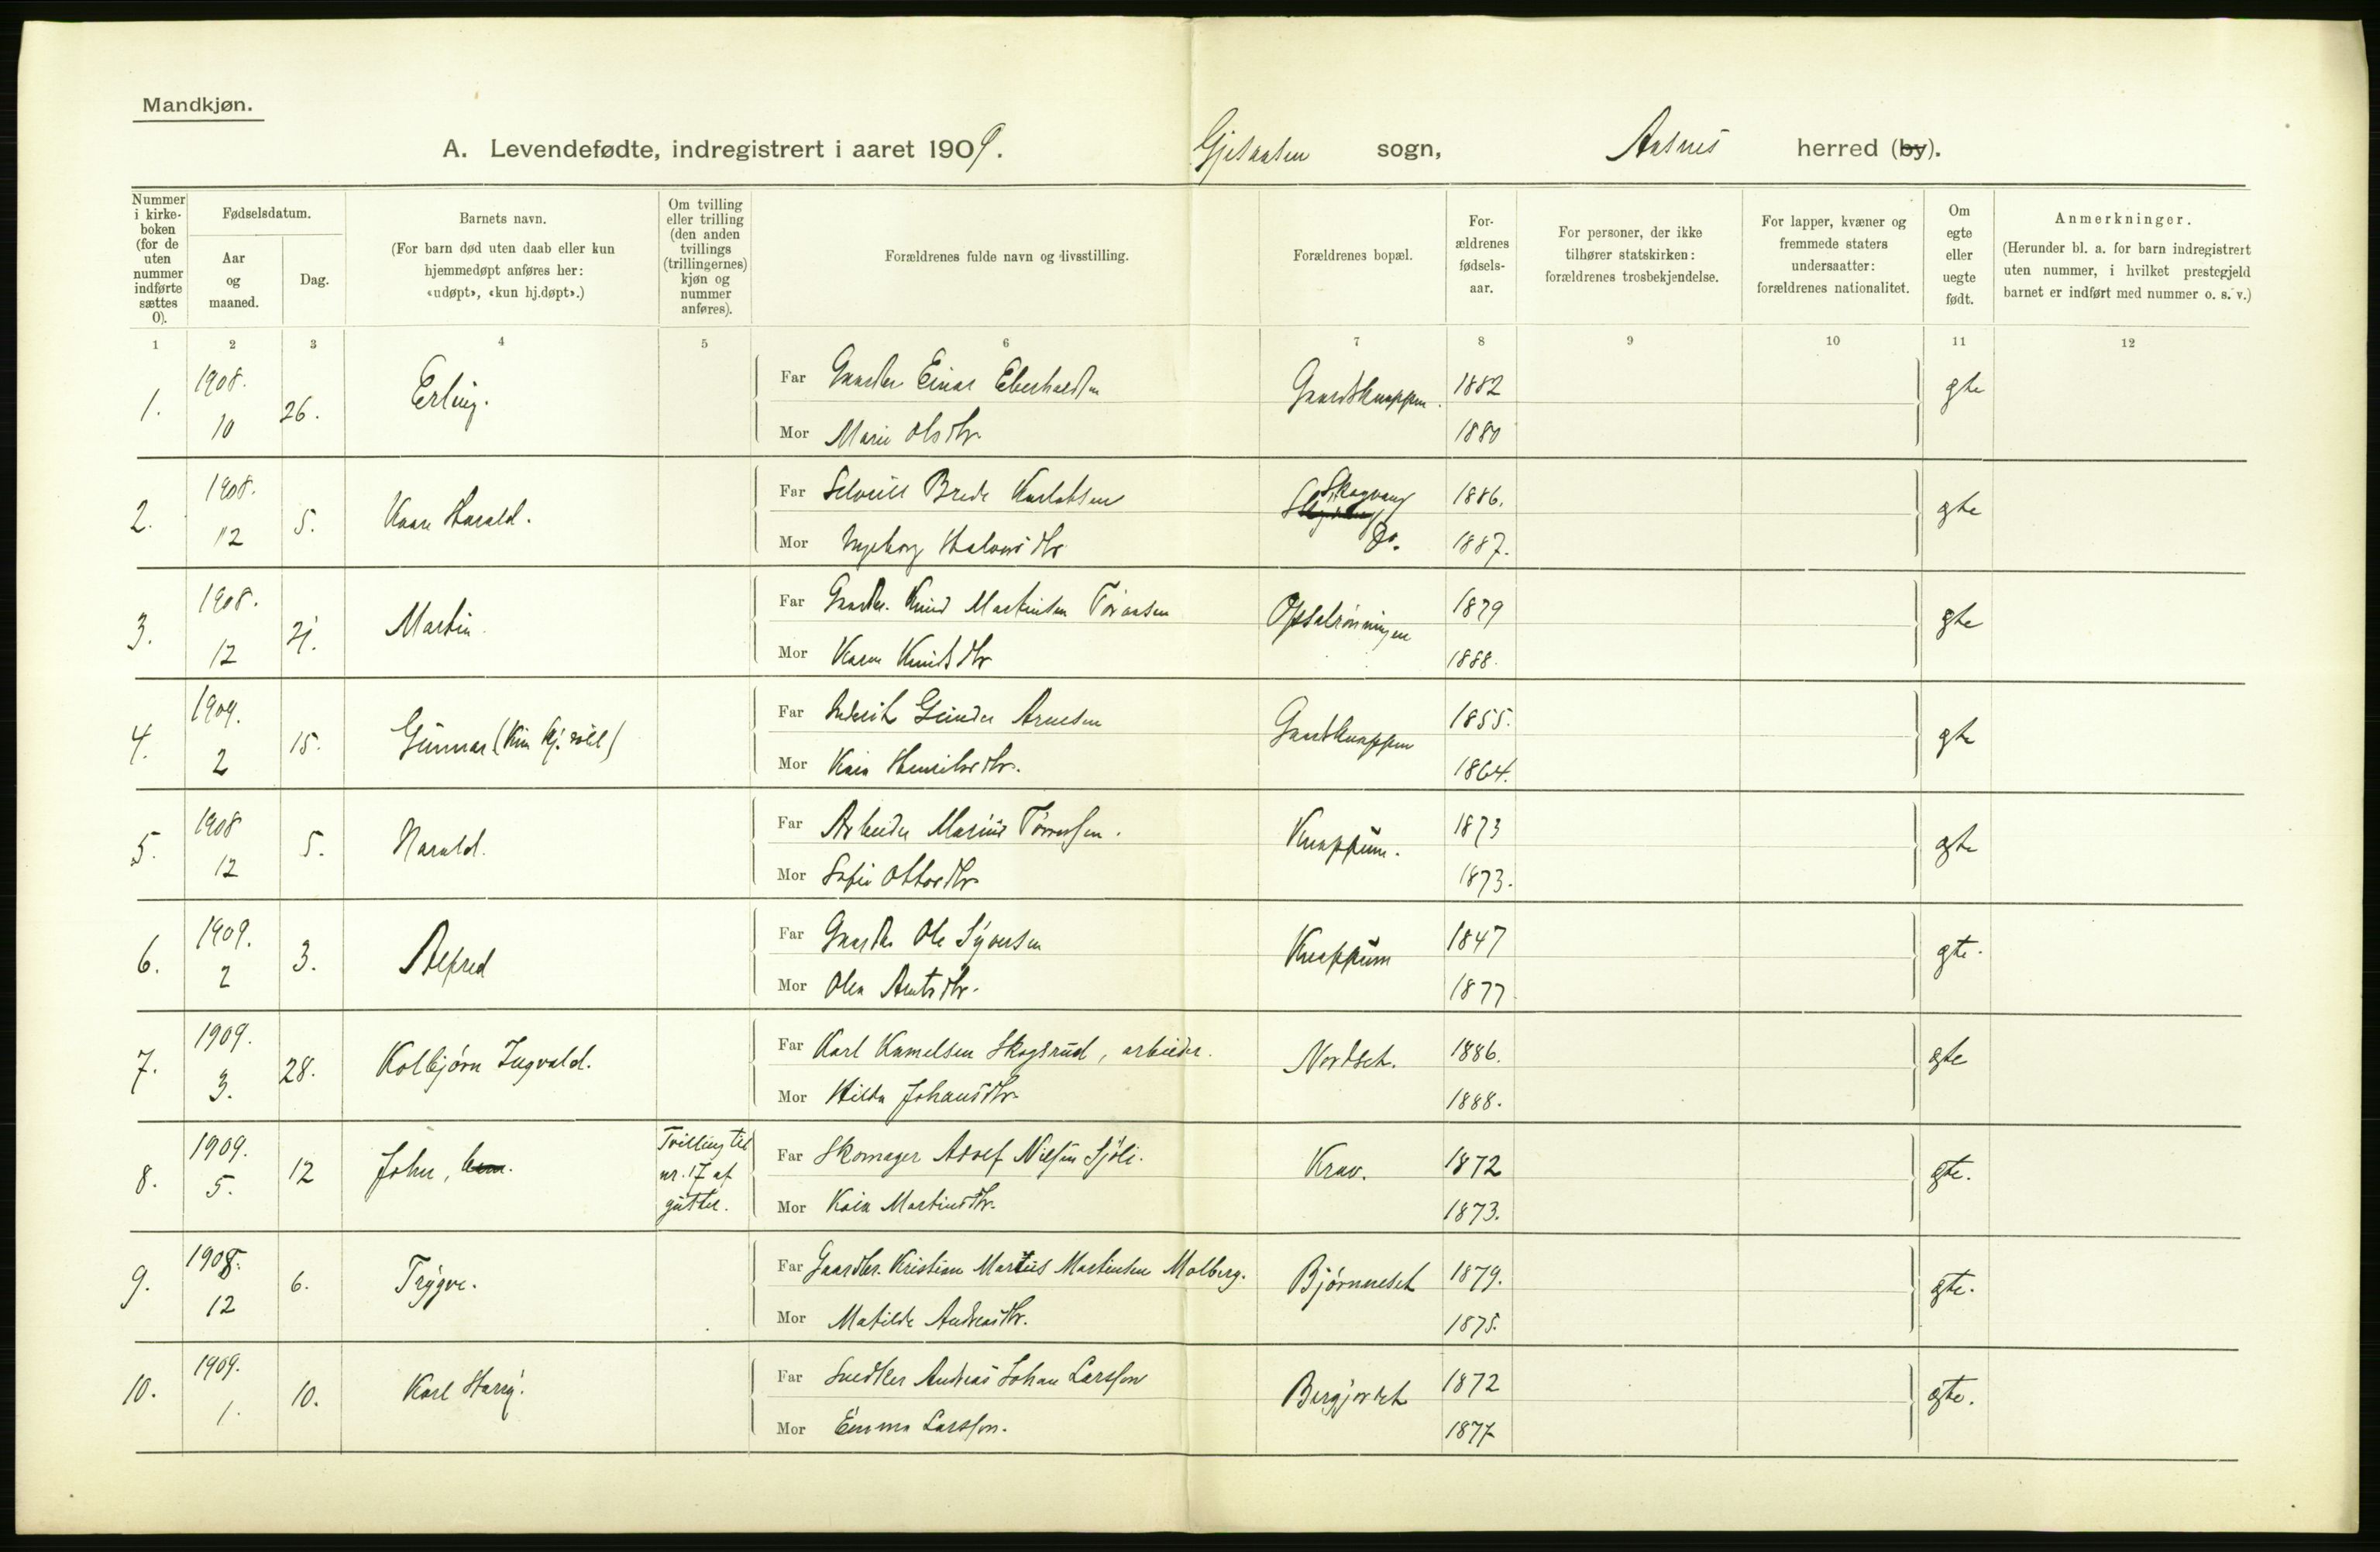 Mandkjøn.
A. Levendefødte, indregistrert i aaret 1909. Gjesaasen sogn, Aasnes herred (by).
Nummer i kirke-boken (for de uten nummer indførte sættes 0).
Fødselsdatum.
Aar og maaned.
Dag.
Barnets navn.
(For barn død uten daab eller kun hjemmedøpt anføres her: «udøpt», «kun hj.døpt».)
Om tvilling eller trilling (den anden tvillings (trillingernes) kjøn og nummer anføres).
Forældrenes fulde navn og livsstilling.
Forældrenes bopæl.
For-ældrenes fødsels-aar.
For personer, der ikke tilhører statskirken: forældrenes trosbekjendelse.
For lapper, kvæner og fremmede staters undersaatter: forældrenes nationalitet.
Om egte eller uegte født.
Anmerkninger.
(Herunder bl. a. for barn indregistrert uten nummer, i hvilket prestegjeld barnet er indført med nummer o. s. v.)
1 2 3 4 5 6 7 8 9 10 11 12
1. 1908. 10 26. Erling. Far Gaardbr. Einar Eberhardsen Gaardsknappen. 1882 gte
Mor Marie Olsdtr. 1880
2. 1908. 12 5. Kaare Harald. Far Selveier Brede Karlobsen Skogvang 1886. gte
Mor Ingeborg Halvorsdtr. Do. 1887.
3. 1908. 12 21. Martin. Far Gaardbr. Knud Martinsen Toraasen Opsalrönningen 1879 gte
Mor Karen Knudsdtr. 1888.
4. 1909. 2 15. Gunnar (Kun hj. Far Gunder Arnesen Gaardsknappen 1855. gte
Mor Kaia Henriksdtr. 1864.
5. 1908 12 5. Harald. Far Arbeider Marius Tørresen. Knappum. 1873 gte
Mor Sofie Ottosdtr. 1873.
6. 1909. 2 3. Alfred Far Gaardbr. Ole Syversen Knappum 1847 gte.
Mor Olea Arntsdtr. 1877
7. 1909. 3. 28. Kolbjørn Ingvald. Far Karl Kamelsen Skogsrud, arbeider. Nordset. 1886. gte
Mor Hilda Johansdtr. 1888.
8. 1909. 5. 12 John, Tvilling til nr. 17 af gutter. Far Skomager Adolf Nilsen Sjöli. Krav. 1872 gte.
Mor Kaia Martinsdtr. 1873.
9. 1908. 12 6. Trygve. Far Gaardbr. Kristian Martius Martinsen Molberg. Bjørneset 1879. gte.
Mor Matilde Andreasdtr. 1875.
10. 1909. 1. 10. Karl Harry. Far Snedker Andreas Johan Larsson Bergjordet 1872 gte.
Mor Emma Larsson. 1877